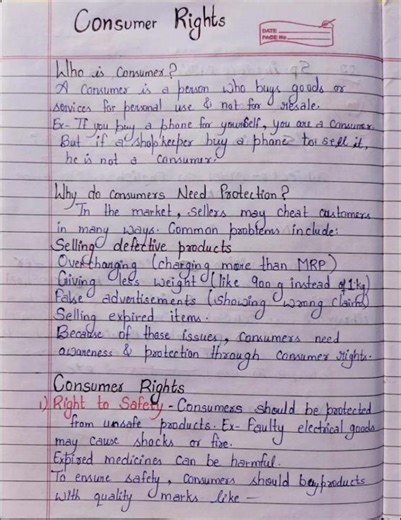 Consumer Rights
DATE
PAGE No
Who is Consumer?
A Consumer is a person who buys goods or
services for personal use & not for resale.
Ex- If you buy a phone for yourself, you are a consumer.
But if a shopkeeper buy a phone to sell it,
he is not a consumer.
Why do consumers Need Protection?
In the market, sellers may cheat customers
in many ways. Common problems include:
Selling defective products
Overcharging (charging more than MRP)
Giving less weight (like 900 g instead of 1 kg)
False advertisements (showing wrong claims)
Selling expired items.
Because of these issues, consumers need
awareness & protection through consumer rights.
Consumer Rights
1) Right to Safety - Consumers should be protected
from unsafe products. Ex- Faulty electrical goods
may cause shocks or fire.
Expired medicines can be harmful.
To ensure safety, consumers should buy products
with quality marks like -